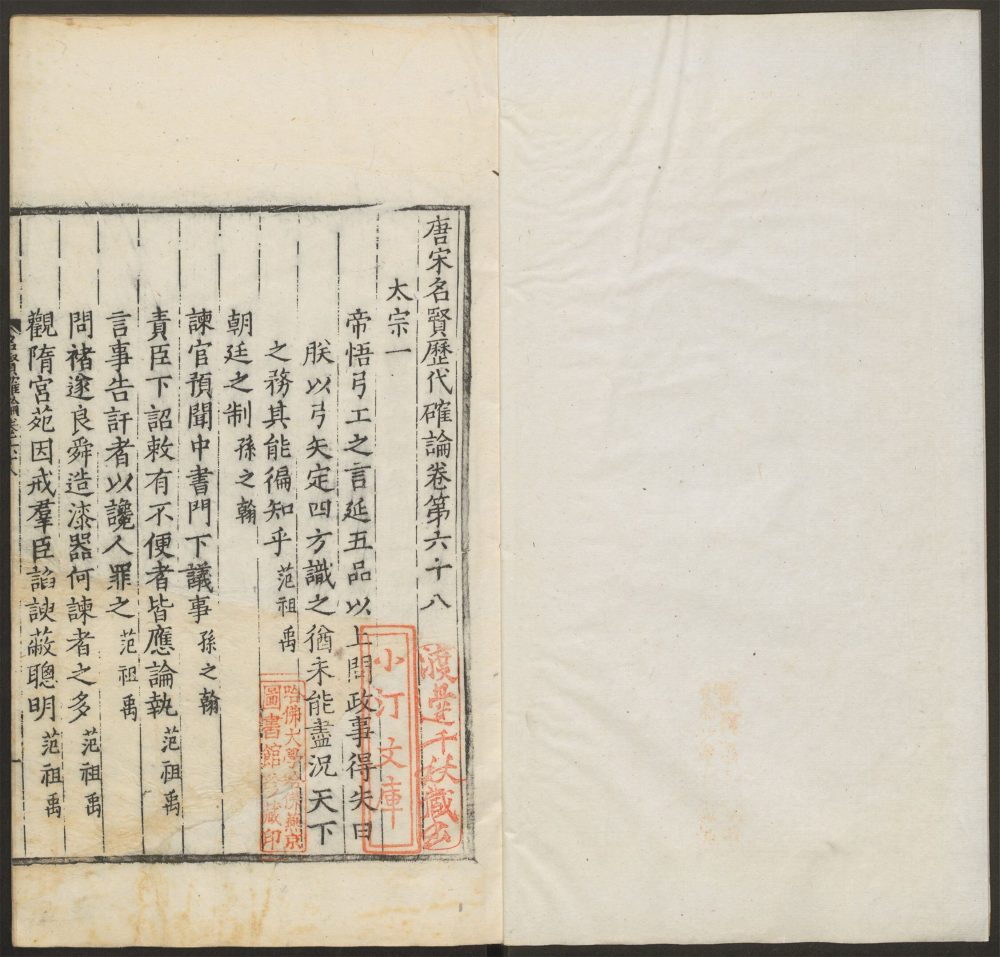 唐宋名賢歷代確論卷第六十八
太宗一
帝悟弓工之言延五品以上問政事得失曰
朕以弓矢定四方識之猶未能盡況天下
之務其能徧知乎 范祖禹
朝廷之制 孫之翰
諫官預聞中書門下議事 孫之翰
責臣下詔敕有不便者皆應論執 范祖禹
言事告訐者以讒人罪之 范祖禹
問褚遂良舜造漆器何諫者之多 范祖禹
觀隋宮苑因戒羣臣諂諛蔽聰明 范祖禹
名賢確論卷六十八
渡邊千秋藏書
小汀文庫
哈佛大學哈佛燕京
圖書館珍藏印